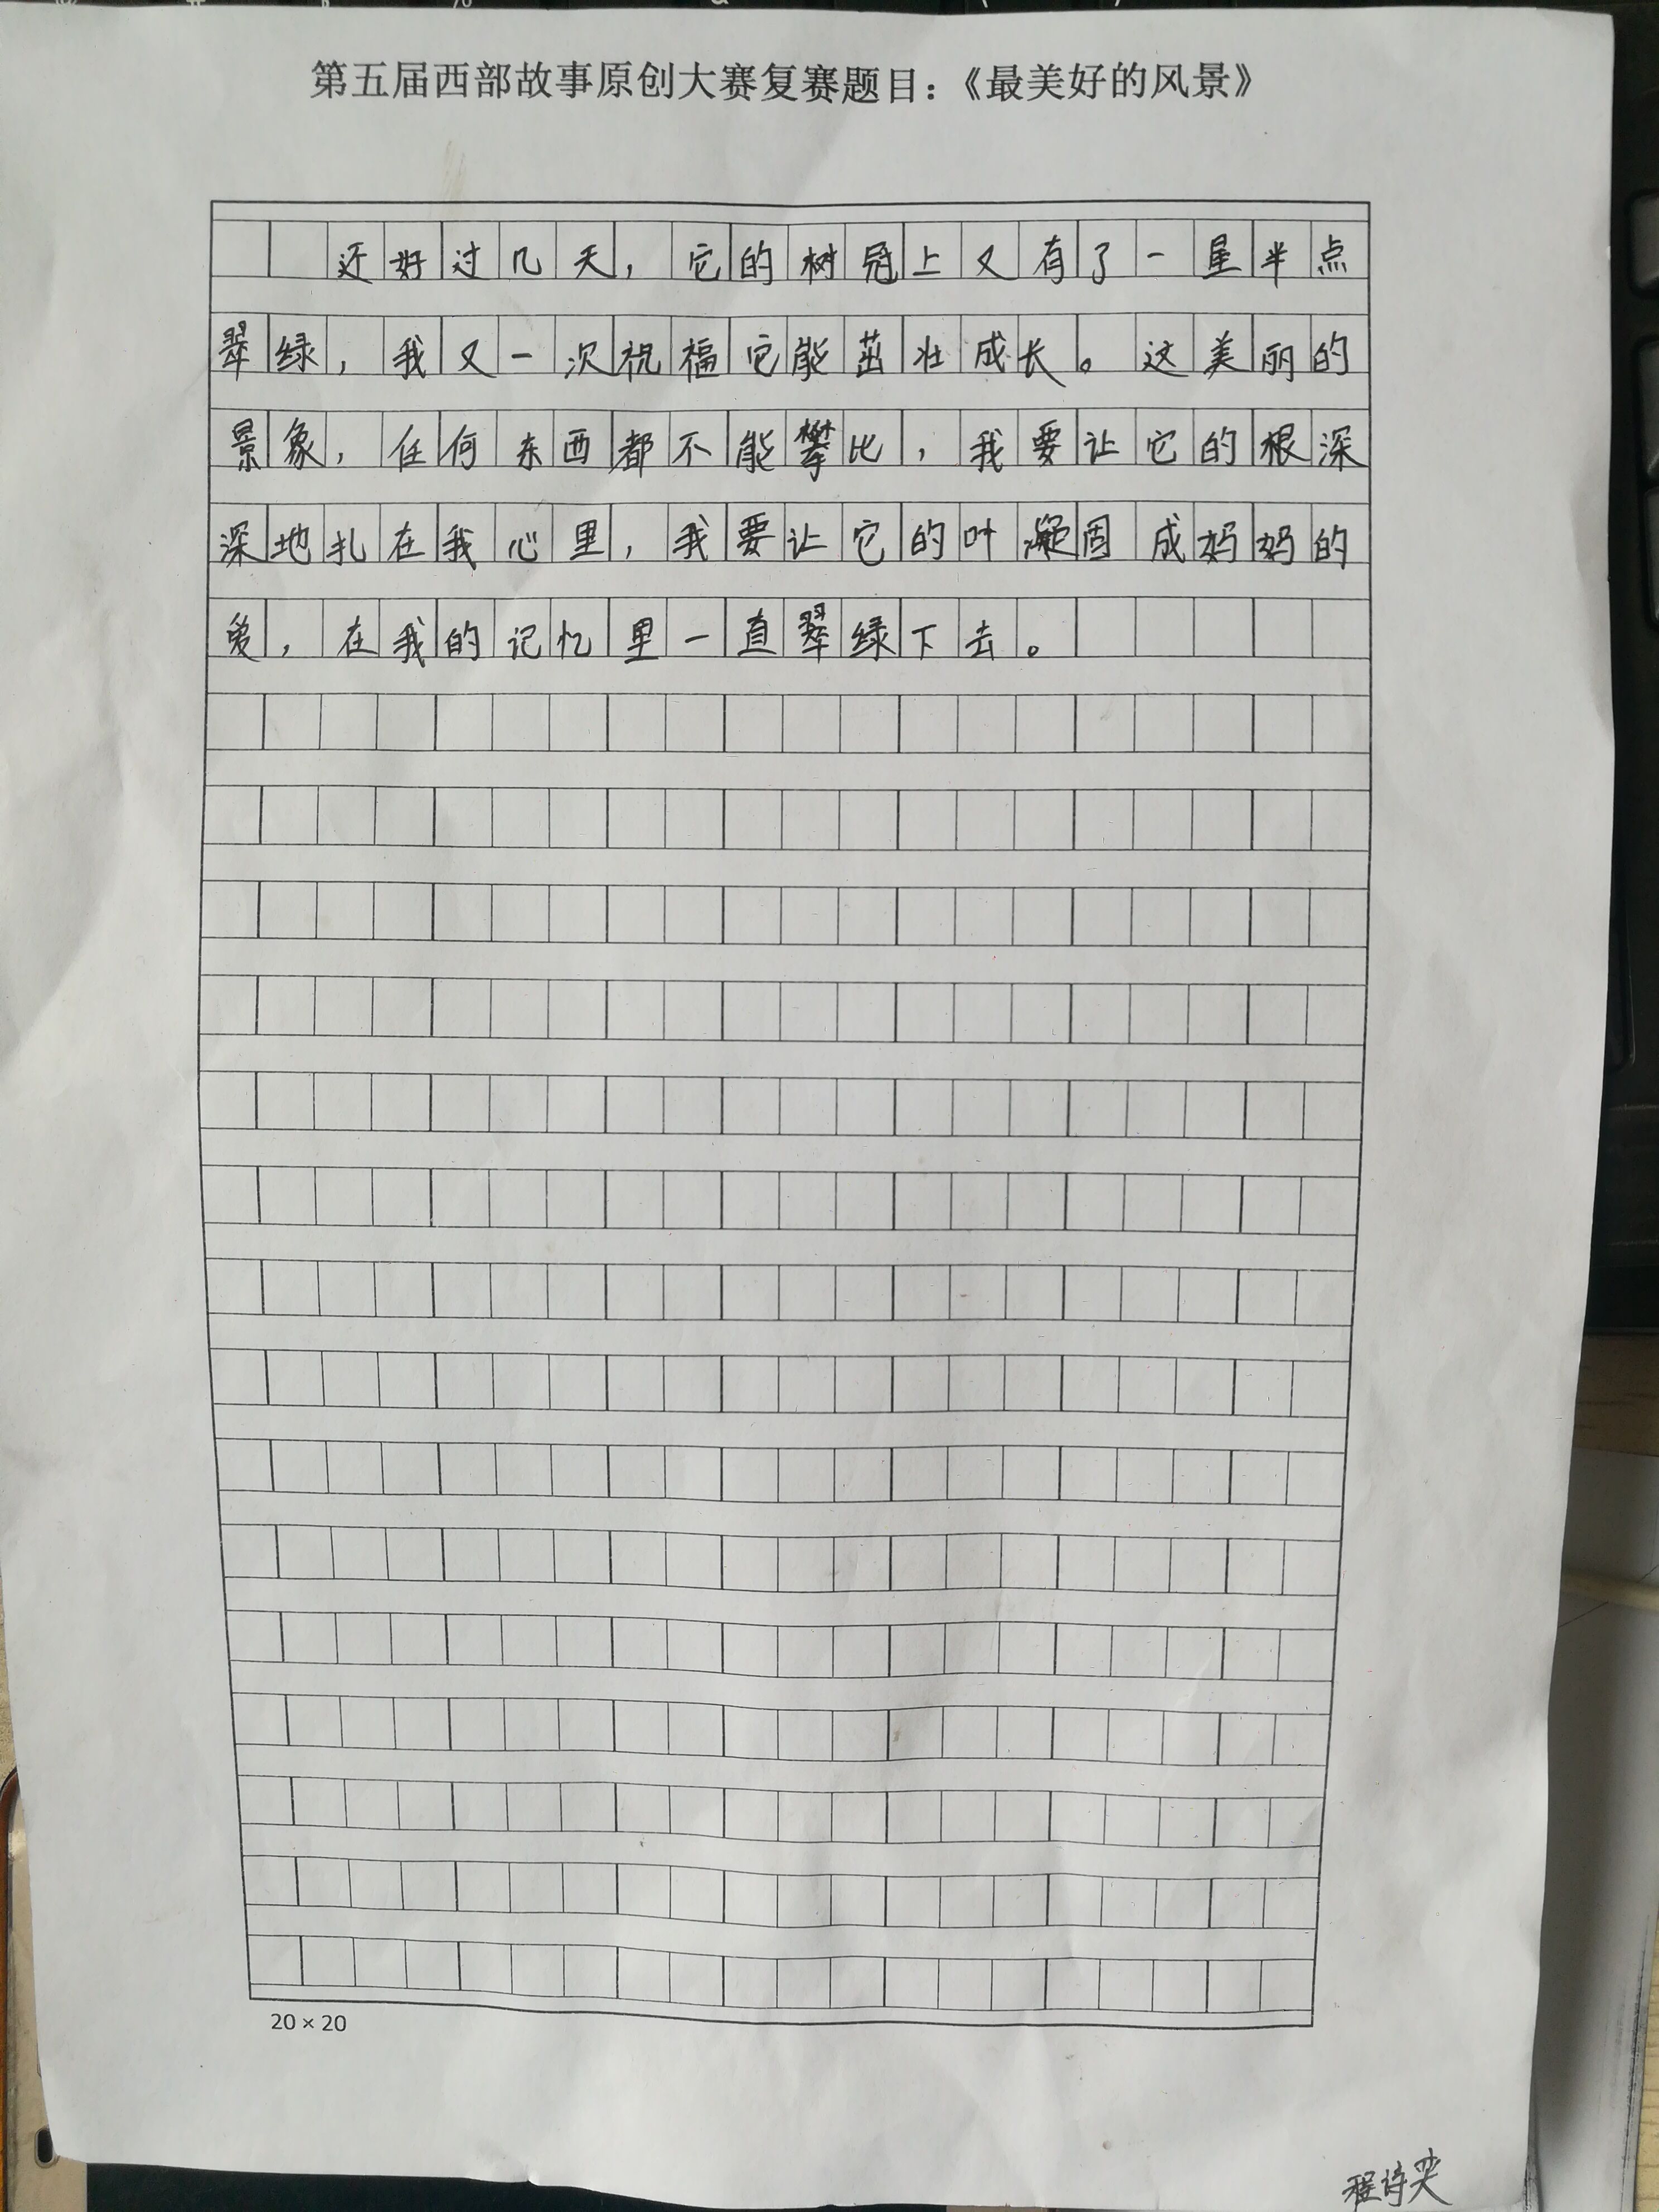 第五届西部故事原创大赛复赛题目：《最美好的风景》
还好过几天，它的树冠上又有了一星半点
翠绿，我又一次祝福它能茁壮成长。这美丽的
景象，任何东西都不能攀比，我要让它的根深
深地扎在我心里，我要让它的叶凝固成妈妈的
爱，在我的记忆里一直翠绿下去。
20×20
程诗笑